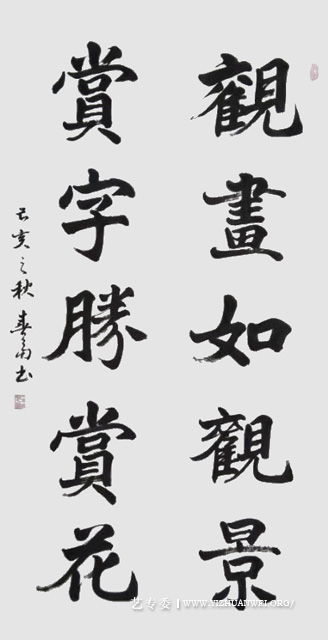 觀畫如觀景
賞字勝賞花
己亥之秋 春南书
艺专委 | WWW.YIZHUANWEI.ORG/